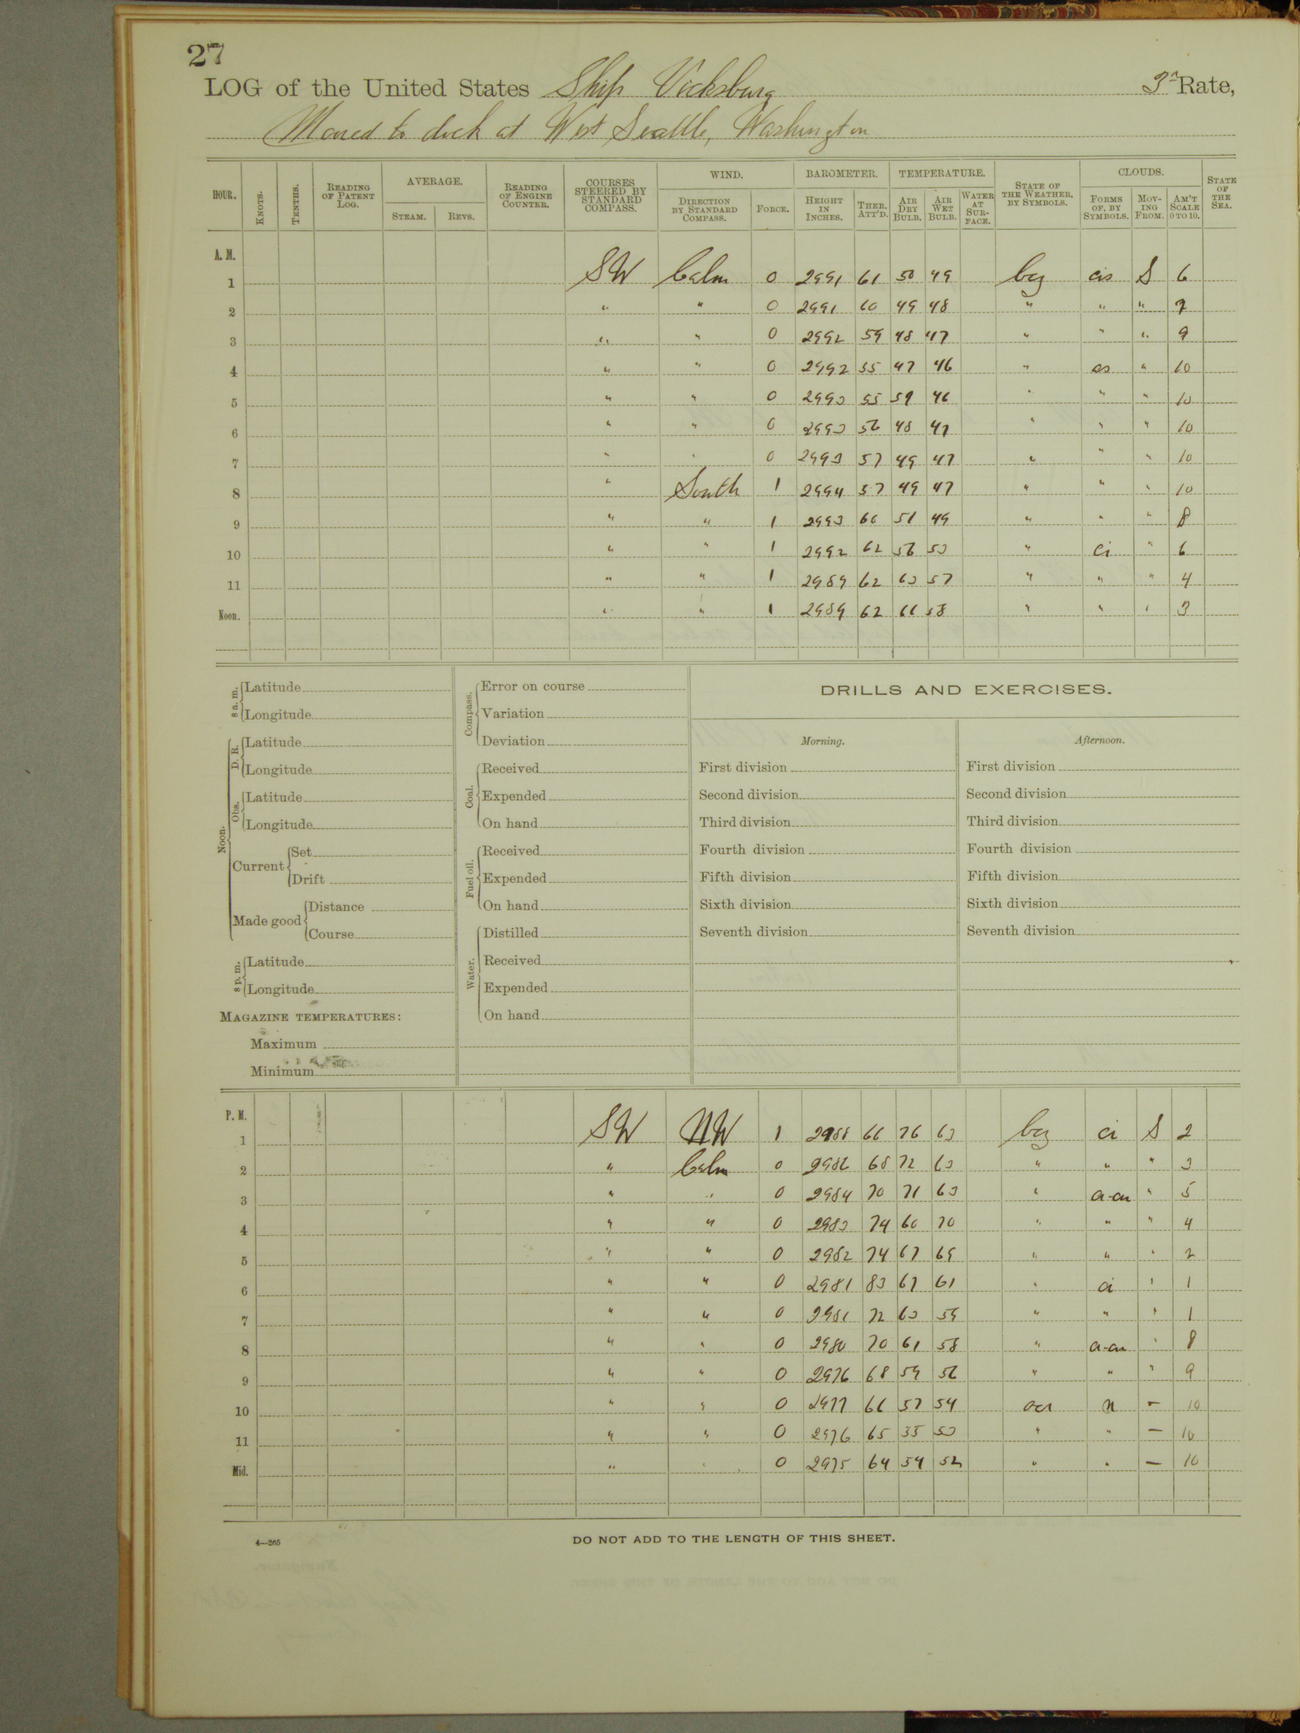 27
LOG of the United States Ship Vicksburg 3d Rate,
Moored to dock at West Seattle, Washington
HOUR. KNOTS. TENTHS. READING OF PATENT LOG. AVERAGE. STEAM. REVS. READING OF ENGINE COUNTER. COURSES STEERED BY STANDARD COMPASS. WIND. DIRECTION BY STANDARD COMPASS. FORCE. BAROMETER. HEIGHT IN INCHES. THER. ATT'D. TEMPERATURE. AIR DRY BULB. AIR WET BULB. WATER AT SURFACE. STATE OF THE WEATHER, BY SYMBOLS. CLOUDS. FORMS OF, BY SYMBOLS. MOVING FROM. AM'T SCALE 0 TO 10. STATE OF THE SEA.
A. M.
1 SW Calm 0 2991 61 50 49 bcz cis S 6
2 " " 0 2991 60 49 48 " " " 7
3 " " 0 2992 59 48 47 " " " 9
4 " " 0 2992 55 47 46 " " 10
5 " " 0 2993 55 46 " " " 10
6 " " 0 2993 56 48 47 " " " 10
7 " " 0 2993 57 49 47 " " " 10
8 " South 1 2994 57 49 47 " " " 10
9 " " 1 2993 60 51 49 " " " 8
10 " " 1 2992 62 56 53 " ci " 6
11 " " 1 2989 62 63 57 " " " 4
Noon. " " 1 2989 62 66 58 " " " 3
8 a. m. Latitude
Longitude
Noon. D. R. Latitude
Longitude
Obs. Latitude
Longitude
Current Set
Drift
Made good Distance
Course
8 p. m. Latitude
Longitude
MAGAZINE TEMPERATURES:
Maximum
Minimum
Compass. Error on course
Variation
Deviation
Coal. Received
Expended
On hand
Fuel oil. Received
Expended
On hand
Water. Distilled
Received
Expended
On hand
DRILLS AND EXERCISES.
Morning.
First division
Second division
Third division
Fourth division
Fifth division
Sixth division
Seventh division
Afternoon.
First division
Second division
Third division
Fourth division
Fifth division
Sixth division
Seventh division
P. M.
1 SW NW 1 2988 66 76 63 bcz ci S 2
2 " Calm 0 2986 68 72 63 " " " 3
3 " " 0 2984 70 71 63 " a-cu " 5
4 " " 0 2983 74 60 70 " " " 4
5 " " 0 2982 74 67 65 " " " 2
6 " " 0 2981 83 67 61 " ci " 1
7 " " 0 2981 72 63 59 " " " 1
8 " " 0 2980 70 61 58 " a-cu " 8
9 " " 0 2976 68 59 56 " " " 9
10 " " 0 2977 66 57 54 n - 10
11 " " 0 2976 65 55 53 " " - 10
Mid. " " 0 2975 64 54 52 " " - 10
4—265
DO NOT ADD TO THE LENGTH OF THIS SHEET.